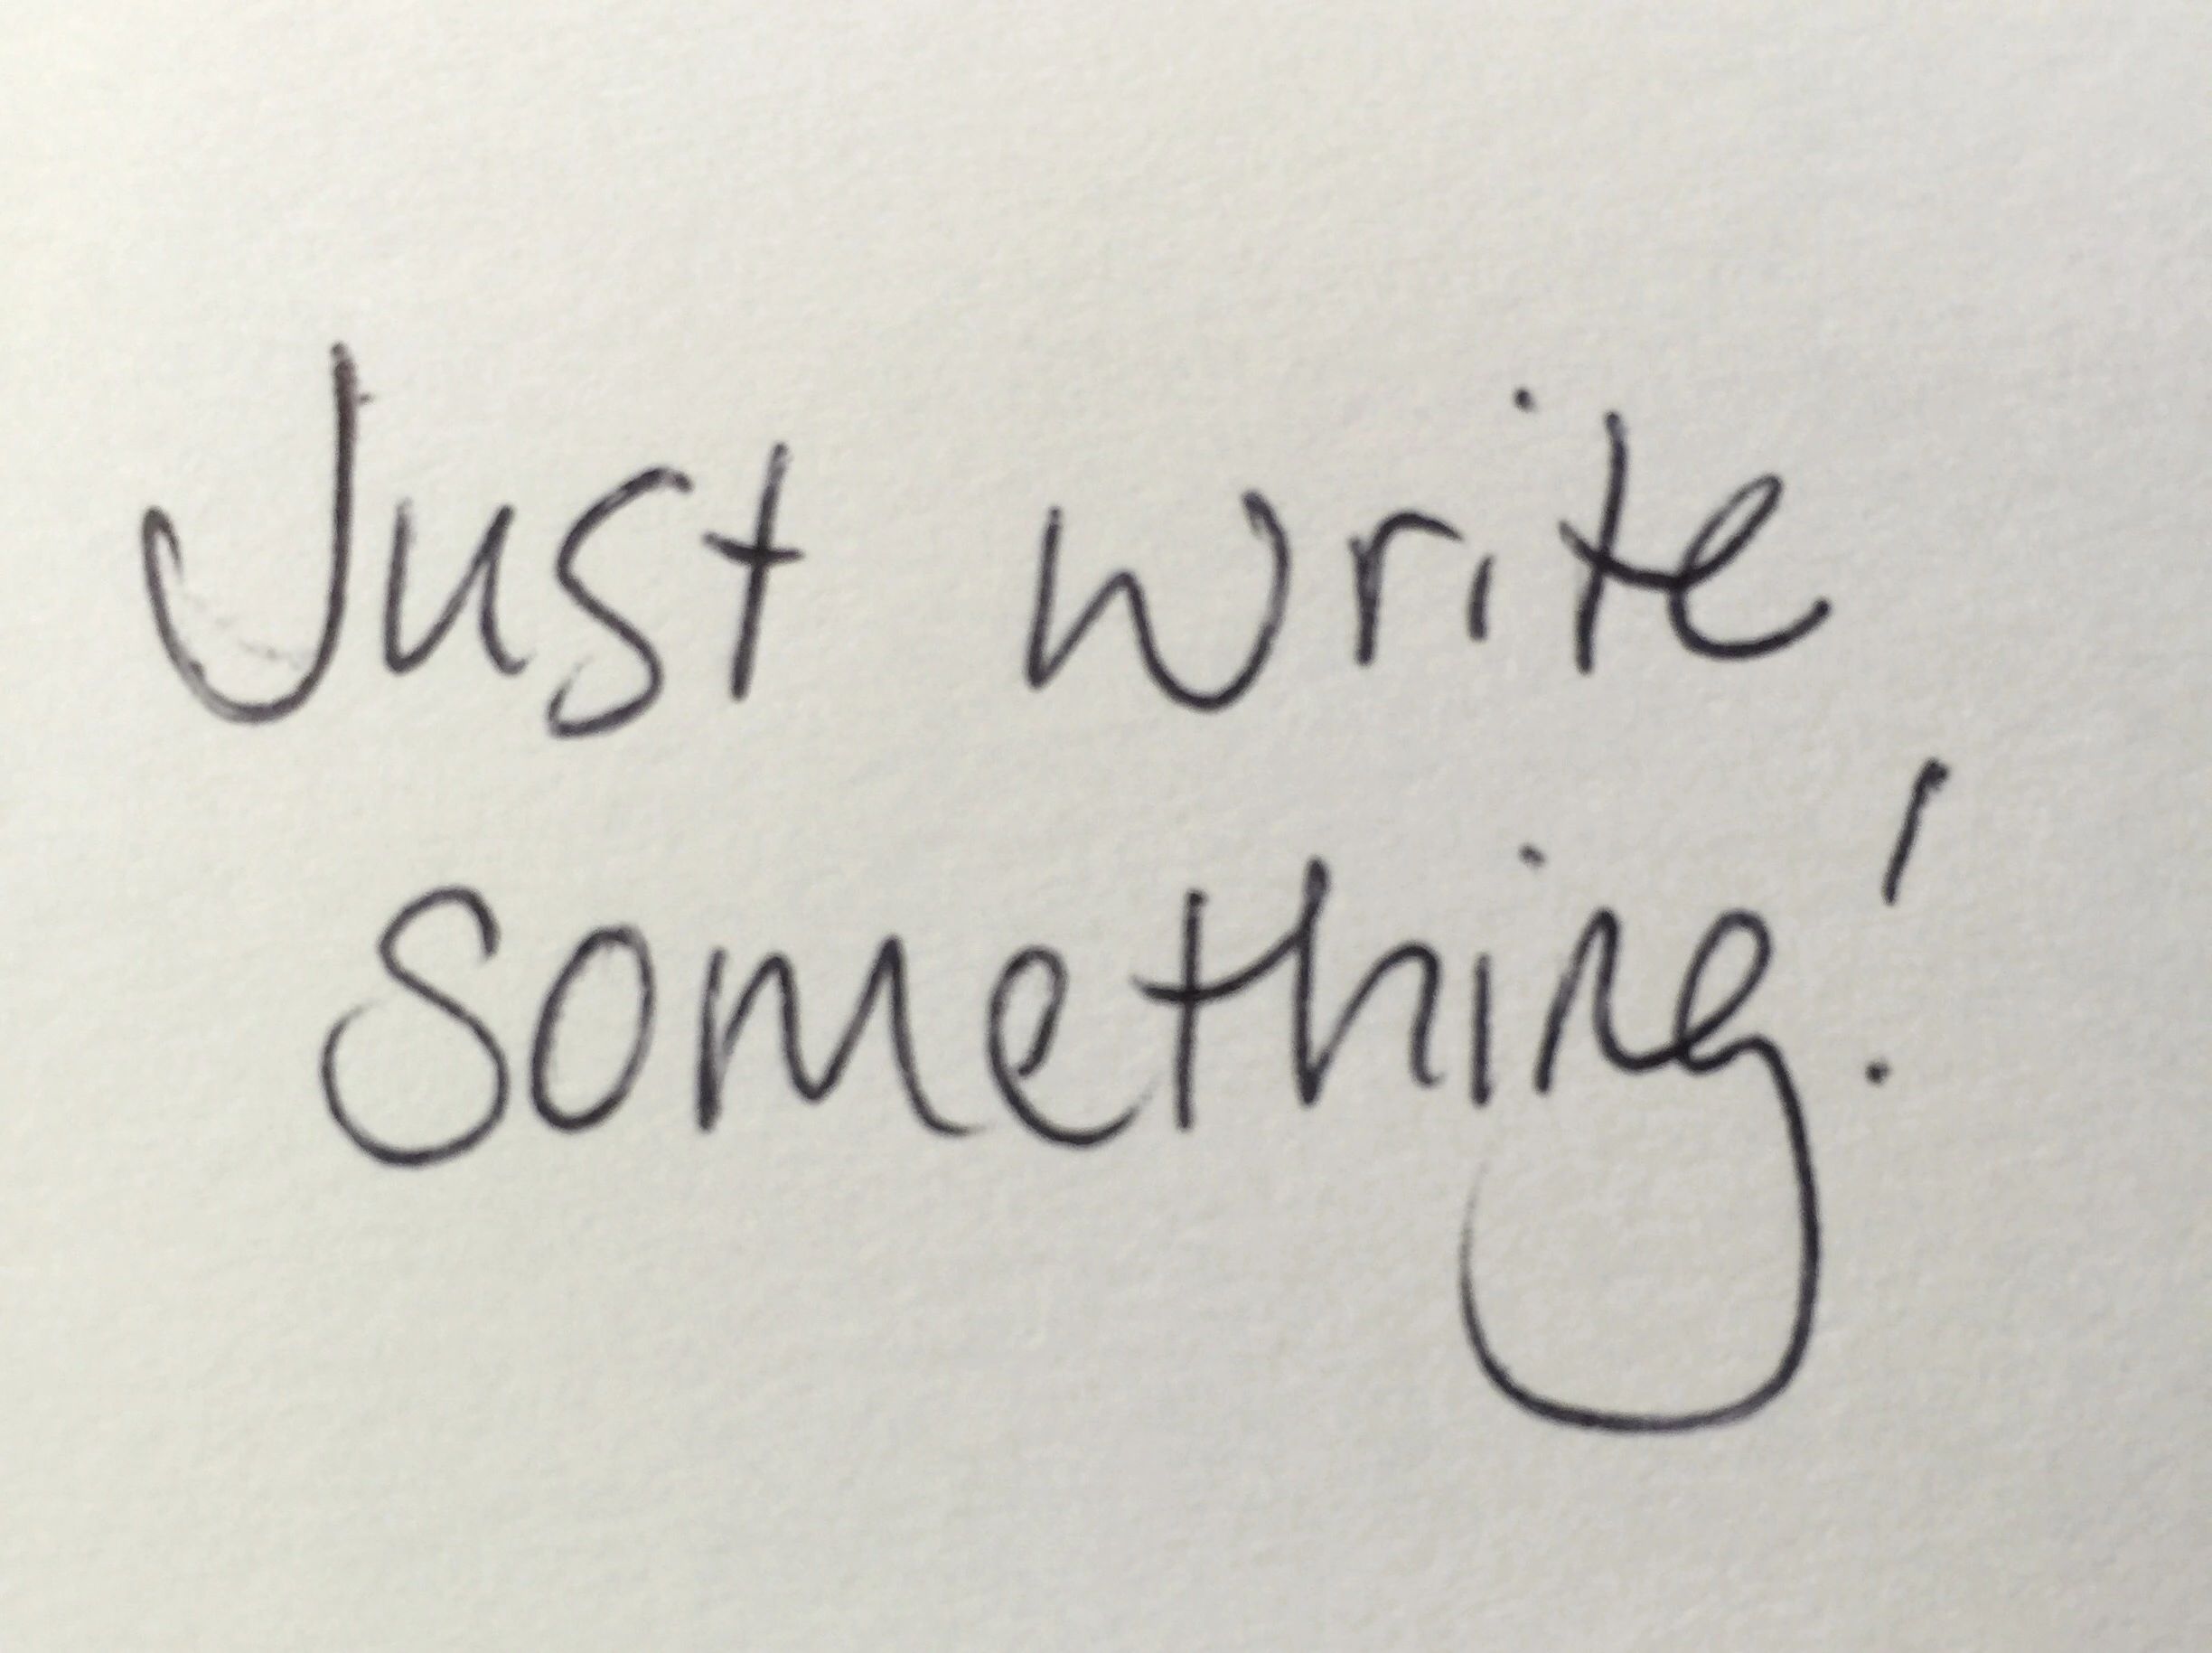 Just write
something!